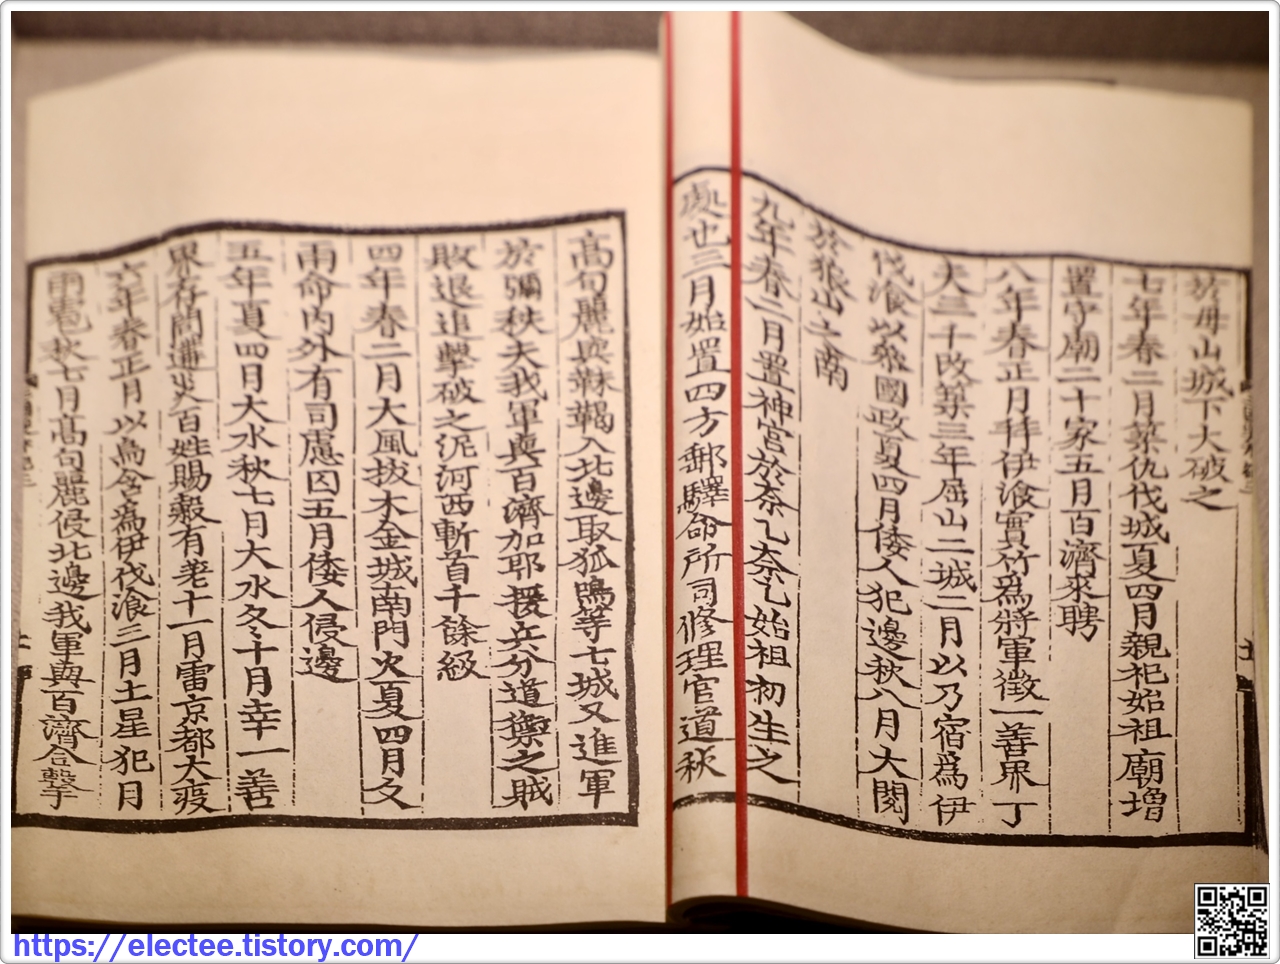 於母山城下大破之
七年春二月築仇伐城夏四月親祀始祖廟增
置守廟二十家五月百濟來聘
八年春正月拜伊湌實竹爲將軍徵一善界丁
夫三千改築三年屈山二城二月以乃宿爲伊
伐湌以叅國政夏四月倭人犯邊秋八月大閱
於狼山之南
九年春二月置神宮於奈乙奈乙始祖初生之
處也三月始置四方郵驛命所司修理官道秋
高句麗與靺鞨入北邊取狐鳴等七城又進軍
於彌秩夫我軍與百濟加耶援兵分道禦之賊
敗退追擊破之泥河西斬首千餘級
四年春二月大風拔木金城南門火夏四月久
雨命內外有司慮囚五月倭人侵邊
五年夏四月大水秋七月大水冬十月幸一善
界存問遘災百姓賜穀有差十一月雷京都大疫
六年春正月以烏含爲伊伐湌三月土星犯月
雨雹秋七月高句麗侵北邊我軍與百濟合擊
https://electee.tistory.com/